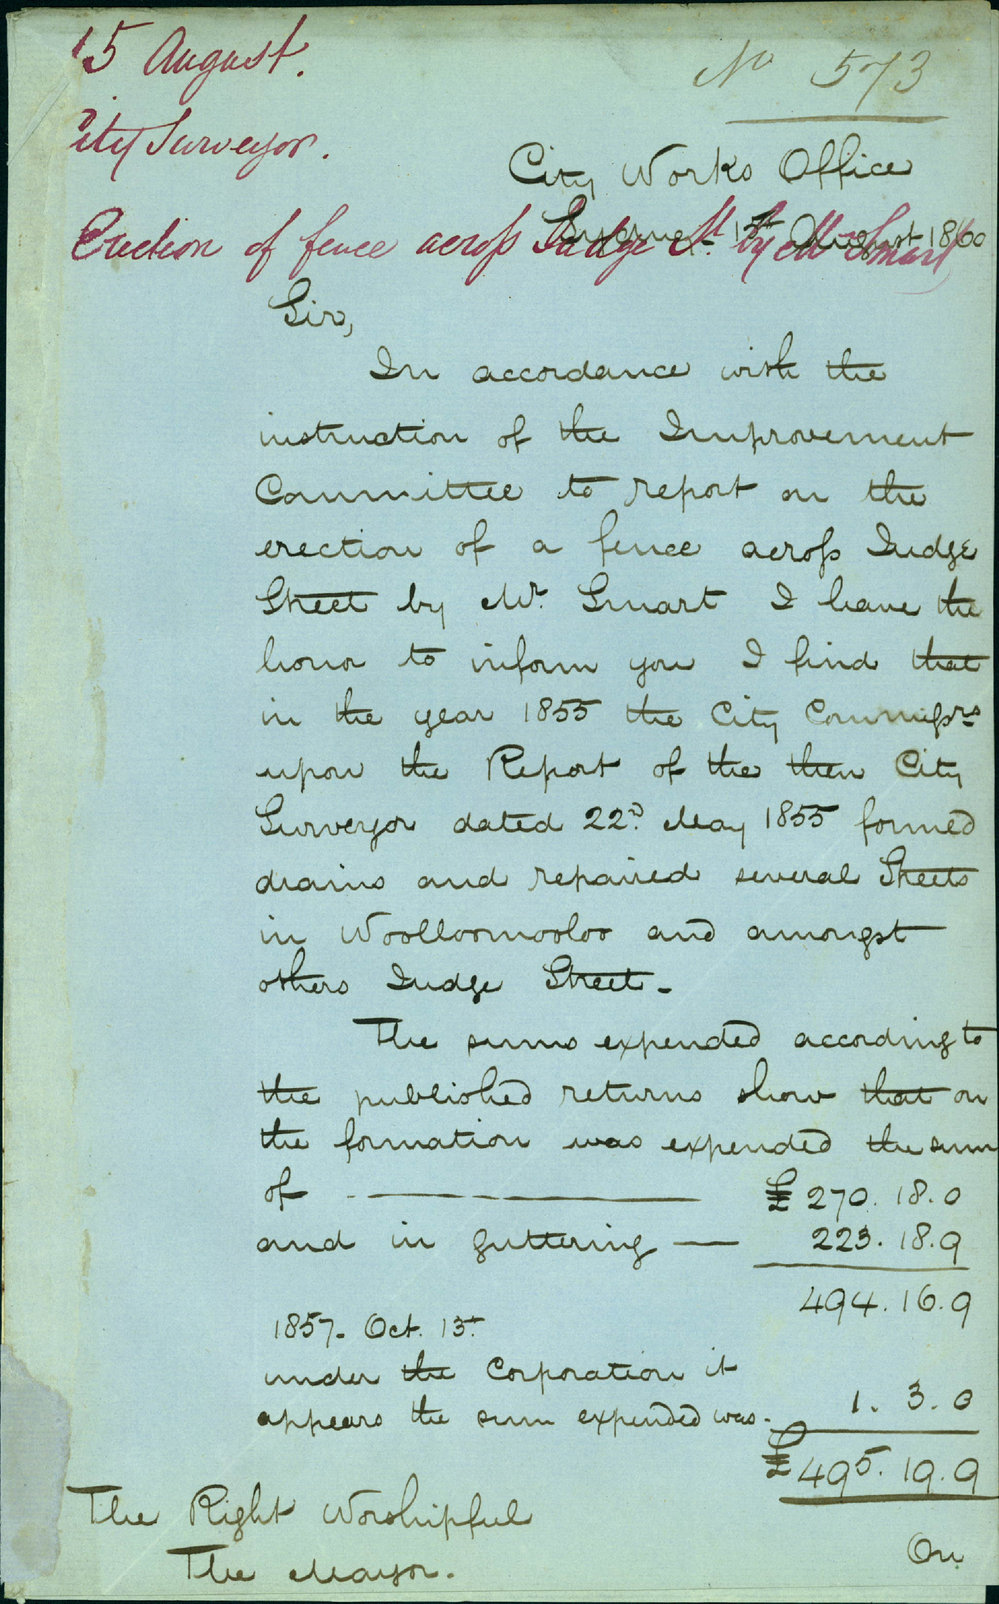 15 August.
No 573
City Surveyor.
City Works Office
August 1860
Erection of fence across Judge St. by Mr Smart
Sir,
In accordance with the
instruction of the Improvement
Committee to report on the
erection of a fence across Judge
Street by Mr. Smart I have the
honor to inform you I find that
in the year 1855 the City Commissrs
upon the Report of the then City
Surveyor dated 22D. May 1855 formed
drains and repaired several Streets
in Woolloomooloo and amongst
others Judge Street.-
The sums expended according to
the published returns show that on
the formation was expended the sum
of - £270.18.0
and in guttering - 223.18.9
494.16.9
1857. Oct. 13t
under the Corporation it
appears the sum expended was. 1.3.0
£495.19.9
The Right Worshipful
The Mayor.
On